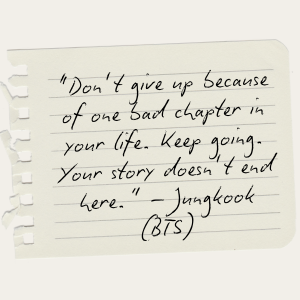 "Don't give up because
of one bad chapter in
your life. Keep going.
Your story doesn't end
here." – Jungkook
(BTS)